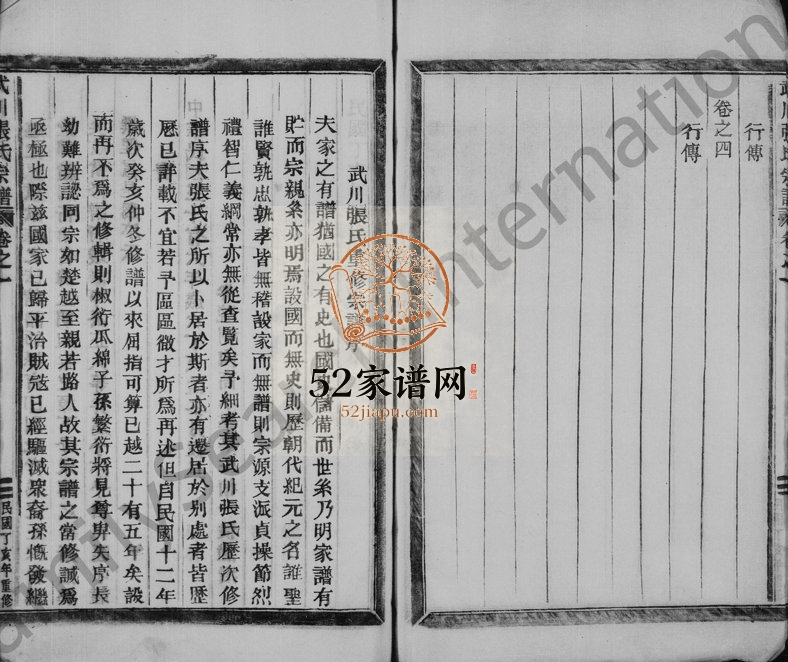 行傳
卷之四
行傳
武川張氏重修宗譜序
夫家之有譜猶國之有史也國有儲備而世系乃明家譜有
貯而宗親系亦明焉設國而無史則歷朝代紀元之名誰聖
誰賢孰忠孰孝皆無稽設家而無譜則宗源支派貞操節烈
禮智仁義綱常亦無從查覽矣予細考其武川張氏歷次修
譜序夫張氏之所以卜居於斯者亦有遷居於別處者皆歷
歷已詳載不宜若予區區微才所爲再述但自民國十二年
歲次癸亥仲冬修譜以來屈指可算已越二十有五年矣設
而再不爲之修輯則椒衍瓜綿子孫繁衍將見尊卑失序長
幼難辨認同宗如楚越至親若路人故其宗譜之當修誠爲
亟極也際茲國家已歸平治賊寇已經驅滅眾裔孫慨發繼
武川張氏宗譜
卷之一
民國丁亥年重修
52家谱网
52jiapu.com
International